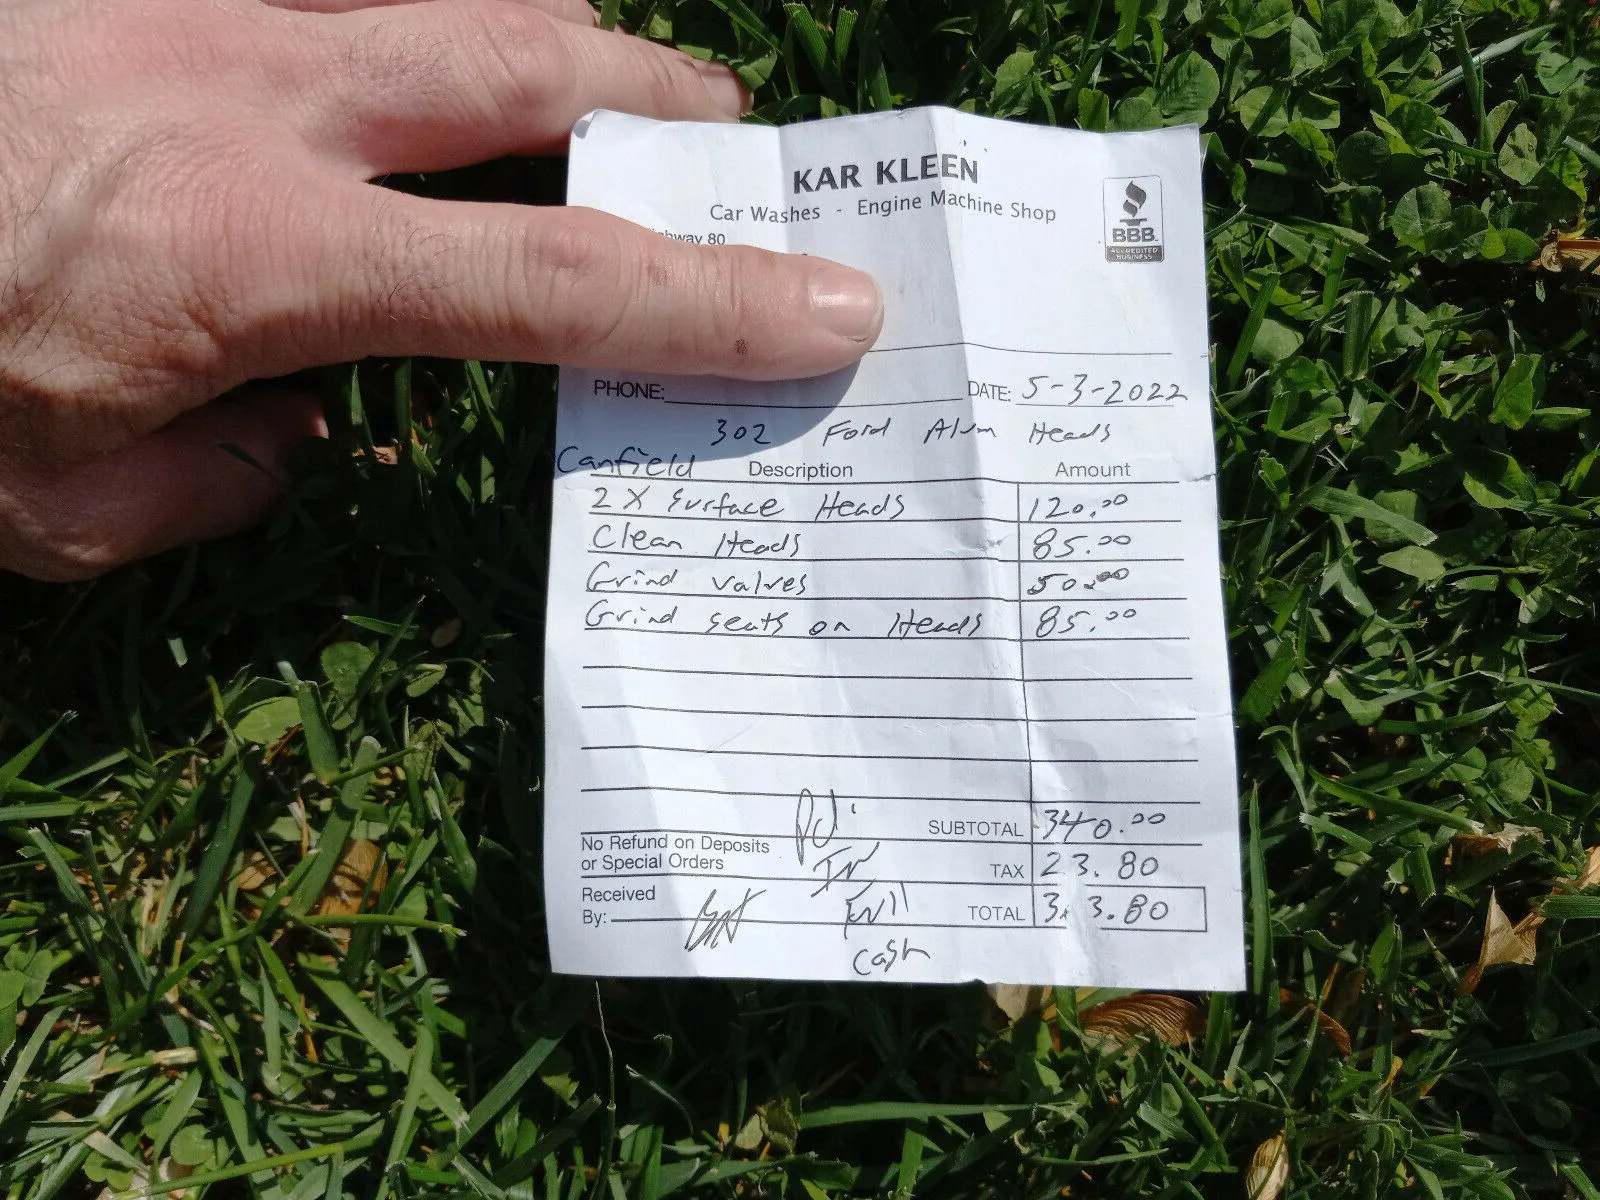 KAR KLEEN
Car Washes - Engine Machine Shop
BBB
ACCREDITED
BUSINESS
hway 80
PHONE: DATE: 5-3-2022
302 Ford Alum Heads
Canfield Description Amount
2 X Surface Heads 120.00
Clean Heads 85.00
Grind valves 50.00
Grind seats on Heads 85.00
Pd. SUBTOTAL 340.00
No Refund on Deposits
or Special Orders
In TAX 23.80
Received
By: Full TOTAL 3 3.80
Cash